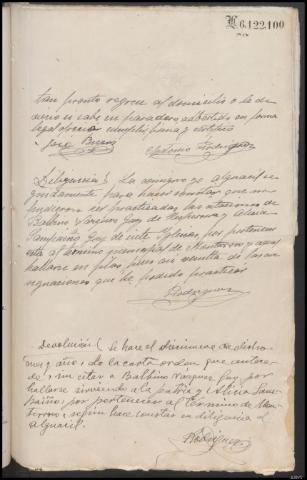 L6.122.100
tan pronto regrese al domicilio o la de
cino se sabe su paradero, advertido en forma
legal ofrece cumplirlo firma y certifico
José Antonio Rodriguez
Diligencia: La extiendo yo alguacil se
guidamente para hacer constar que no
pudieron ser practicadas las citaciones de
Balbino Vazquez Gay de y Alicia
Sampaiño Gay de siete Iglesias por pertenecer
esta al termino municipal de Monterroso y aquel
hallarse en filas pues así resulta de las ave
riguaciones que he podido practicar
Rodriguez
Devolución: Se hace el diecinueve de dichos
mes y año, de la carta orden que antece
de, sin citar a Balbino Vazquez Gay, por
hallarse sirviendo a la patria y Alicia Sam
paiño; por pertenecer al Término de Mon
terroso, según hace constar en diligencia el
Alguacil.
Rodriguez